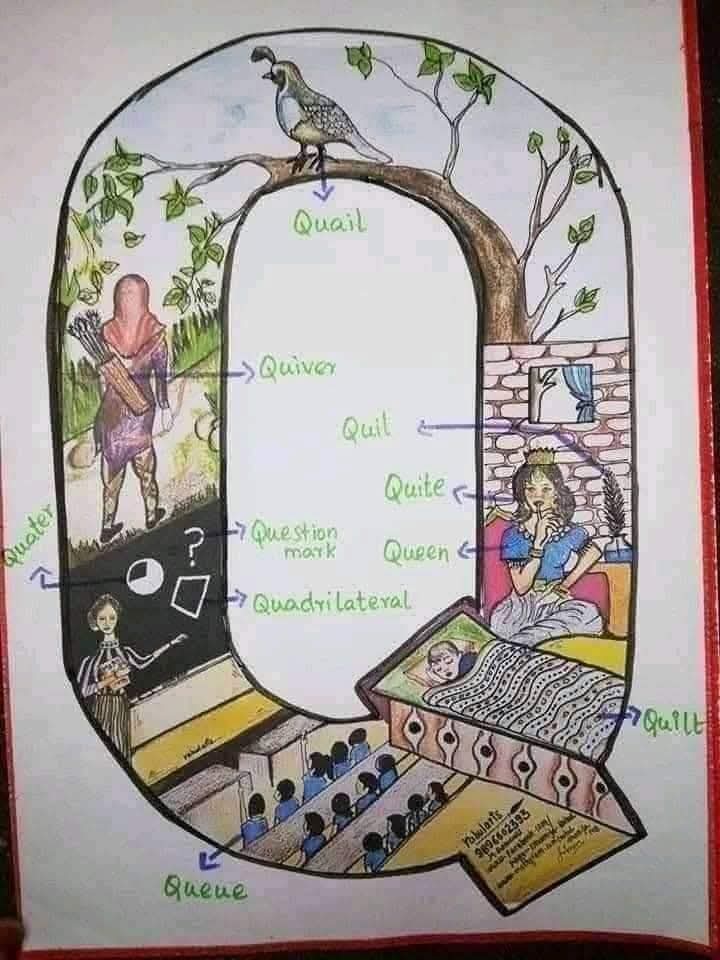 Quail
Quiver
Quil
Quite
Quater
?
Question
mark
Queen
Quadrilateral
Quilt
Queue
9896602393